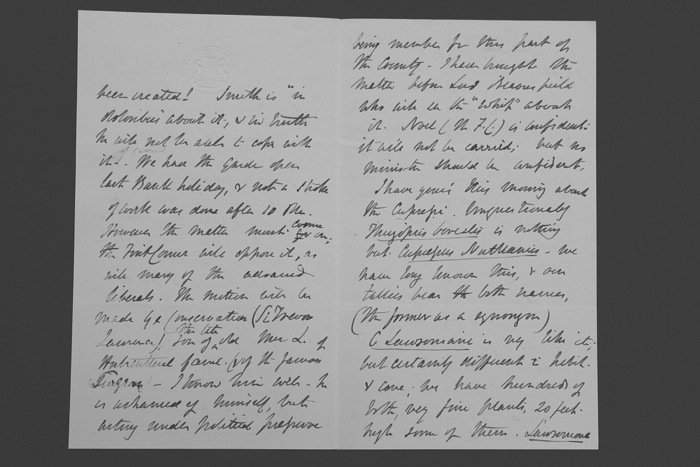 been created! Smith is "in
about it, & in truth
he will not be able to cope with
it. We had the Garden open
last Bank holiday, & not a stroke
of work was done after 10 A.M.
However the matter must come on;
the First Comr will oppose it, as
will many of the advanced
liberals. The motion will be
made by a Conservative (Sir Trevor
Lawrence), son of the late Mrs L. of
fame. (of the famous
) – I know him well – he
is ashamed of himself, but
acting under political pressure
being member for this part of
the County – I have brought the
matter before Lord Beaconsfield
who will be the "whip" about
it. Noel (the F.C.) is confident
it will not be carried; but no
minister should be confident.
I have gone this morning about
the Cupressi. Unquestionably
Thuyopsis borealis is nothing
but Cupressus Nutkaensis – we
have long known this, & our
tallies bear the both names,
(the former as a synonym)
C Lawsoniana is very like it,
but certainly different in habit
& cone. we have hundreds of
both, very fine plants, 20 feet
high some of them. Lawsoniana